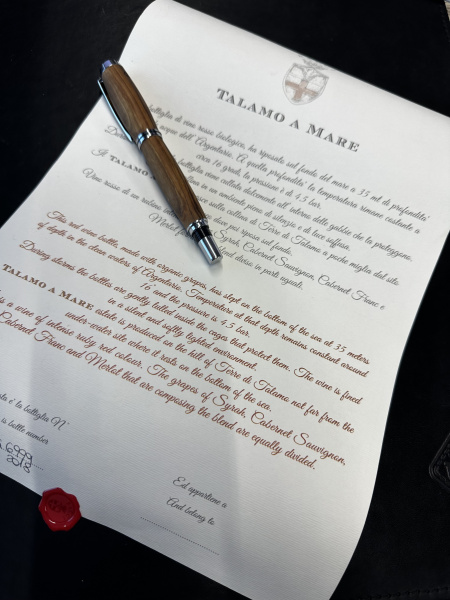 TALAMO A MARE
bottiglia di vino rosso biologico, ha riposato sul fondo del mare a 35 mt di profondità
acque dell' Argentario. A quella profondità la temperatura rimane costante a
circa 16 gradi, la pressione è di 4,5 bar.
bottiglia viene cullata dolcemente all' interno delle gabbie che la proteggono.
in un ambiente pieno di silenzio e di luce soffusa.
Il TALAMO
sulla collina di Terre di Talamo a poche miglia dal sito
dove poi riposa sul fondo.
Vino rosso di un
Syrah, Cabernet Sauvignon, Cabernet Franc e
Merlot divisi in parti uguali.
This red wine bottle, made with organic grapes, has slept on the bottom of the sea at 35 meters
of depth in the clean waters of Argentario. Temperature at that depth remains constant around
16° and the pressure is 4,5 bar.
During storms the bottles are gently lulled inside the cages that protect them. The wine is fined
in a silent and softly lighted environment.
TALAMO A MARE estate is produced on the hill of Terre di Talamo not far from the
under-water site where it rests on the bottom of the sea.
is a wine of intense ruby red colour. The grapes of Syrah, Cabernet Sauvignon,
Cabernet Franc and Merlot that are composing the blend are equally divided.
è la bottiglia N°
is bottle number
6999
2018
Ed appartiene a
And belong to